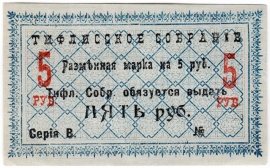 ТИФЛИССКОЕ СОБРАНІЕ
Размѣнная марка на 5 руб.
5 РУБ.
5 РУБ.
Тифл. Собр. обязуется выдать
ПЯТЬ руб.
Серія В. №